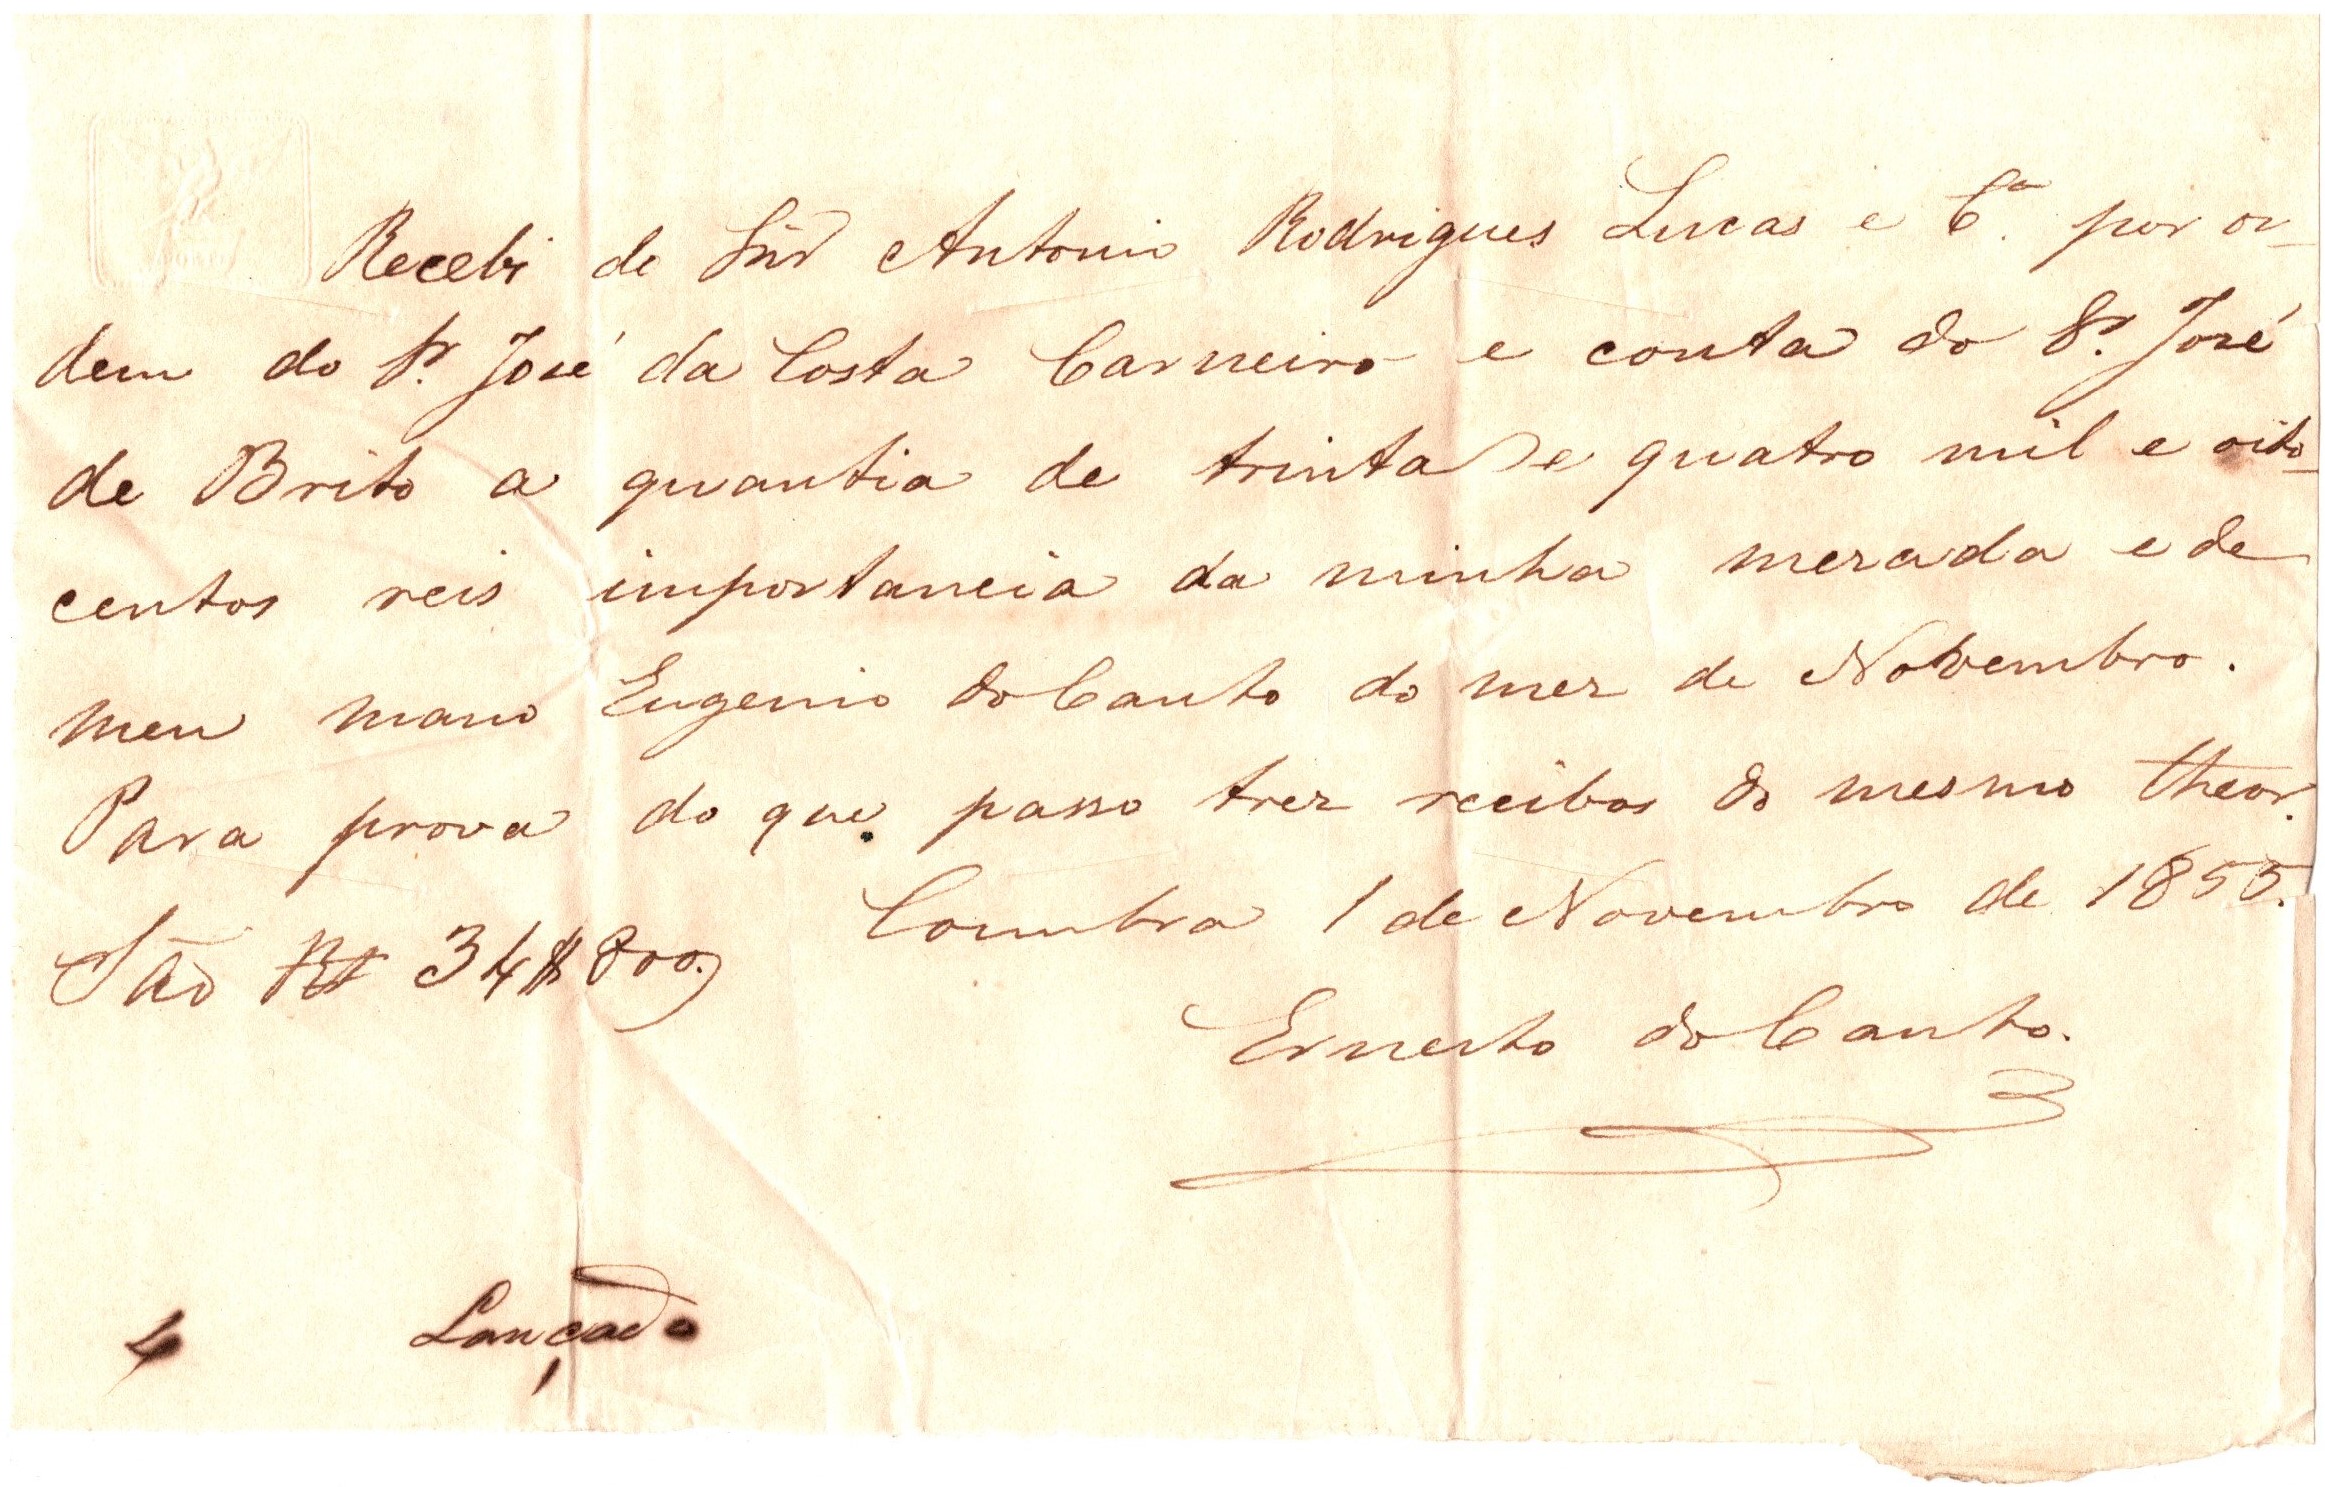 Recebi do Snr Antonio Rodrigues Lucas e Cª. por or-
dem do Sr. José da Costa Carneiro e conta do Sr. José
de Brito a quantia de trinta e quatro mil e oito-
centos reis importancia da minha mezada e de
meu mano Eugenio do Canto do mez de Novembro.
Para prova do que passo trez recibos do mesmo theor.
Coimbra 1 de Novembro de 1855.
São Rs 34$800
Ernesto do Canto.
Lançado